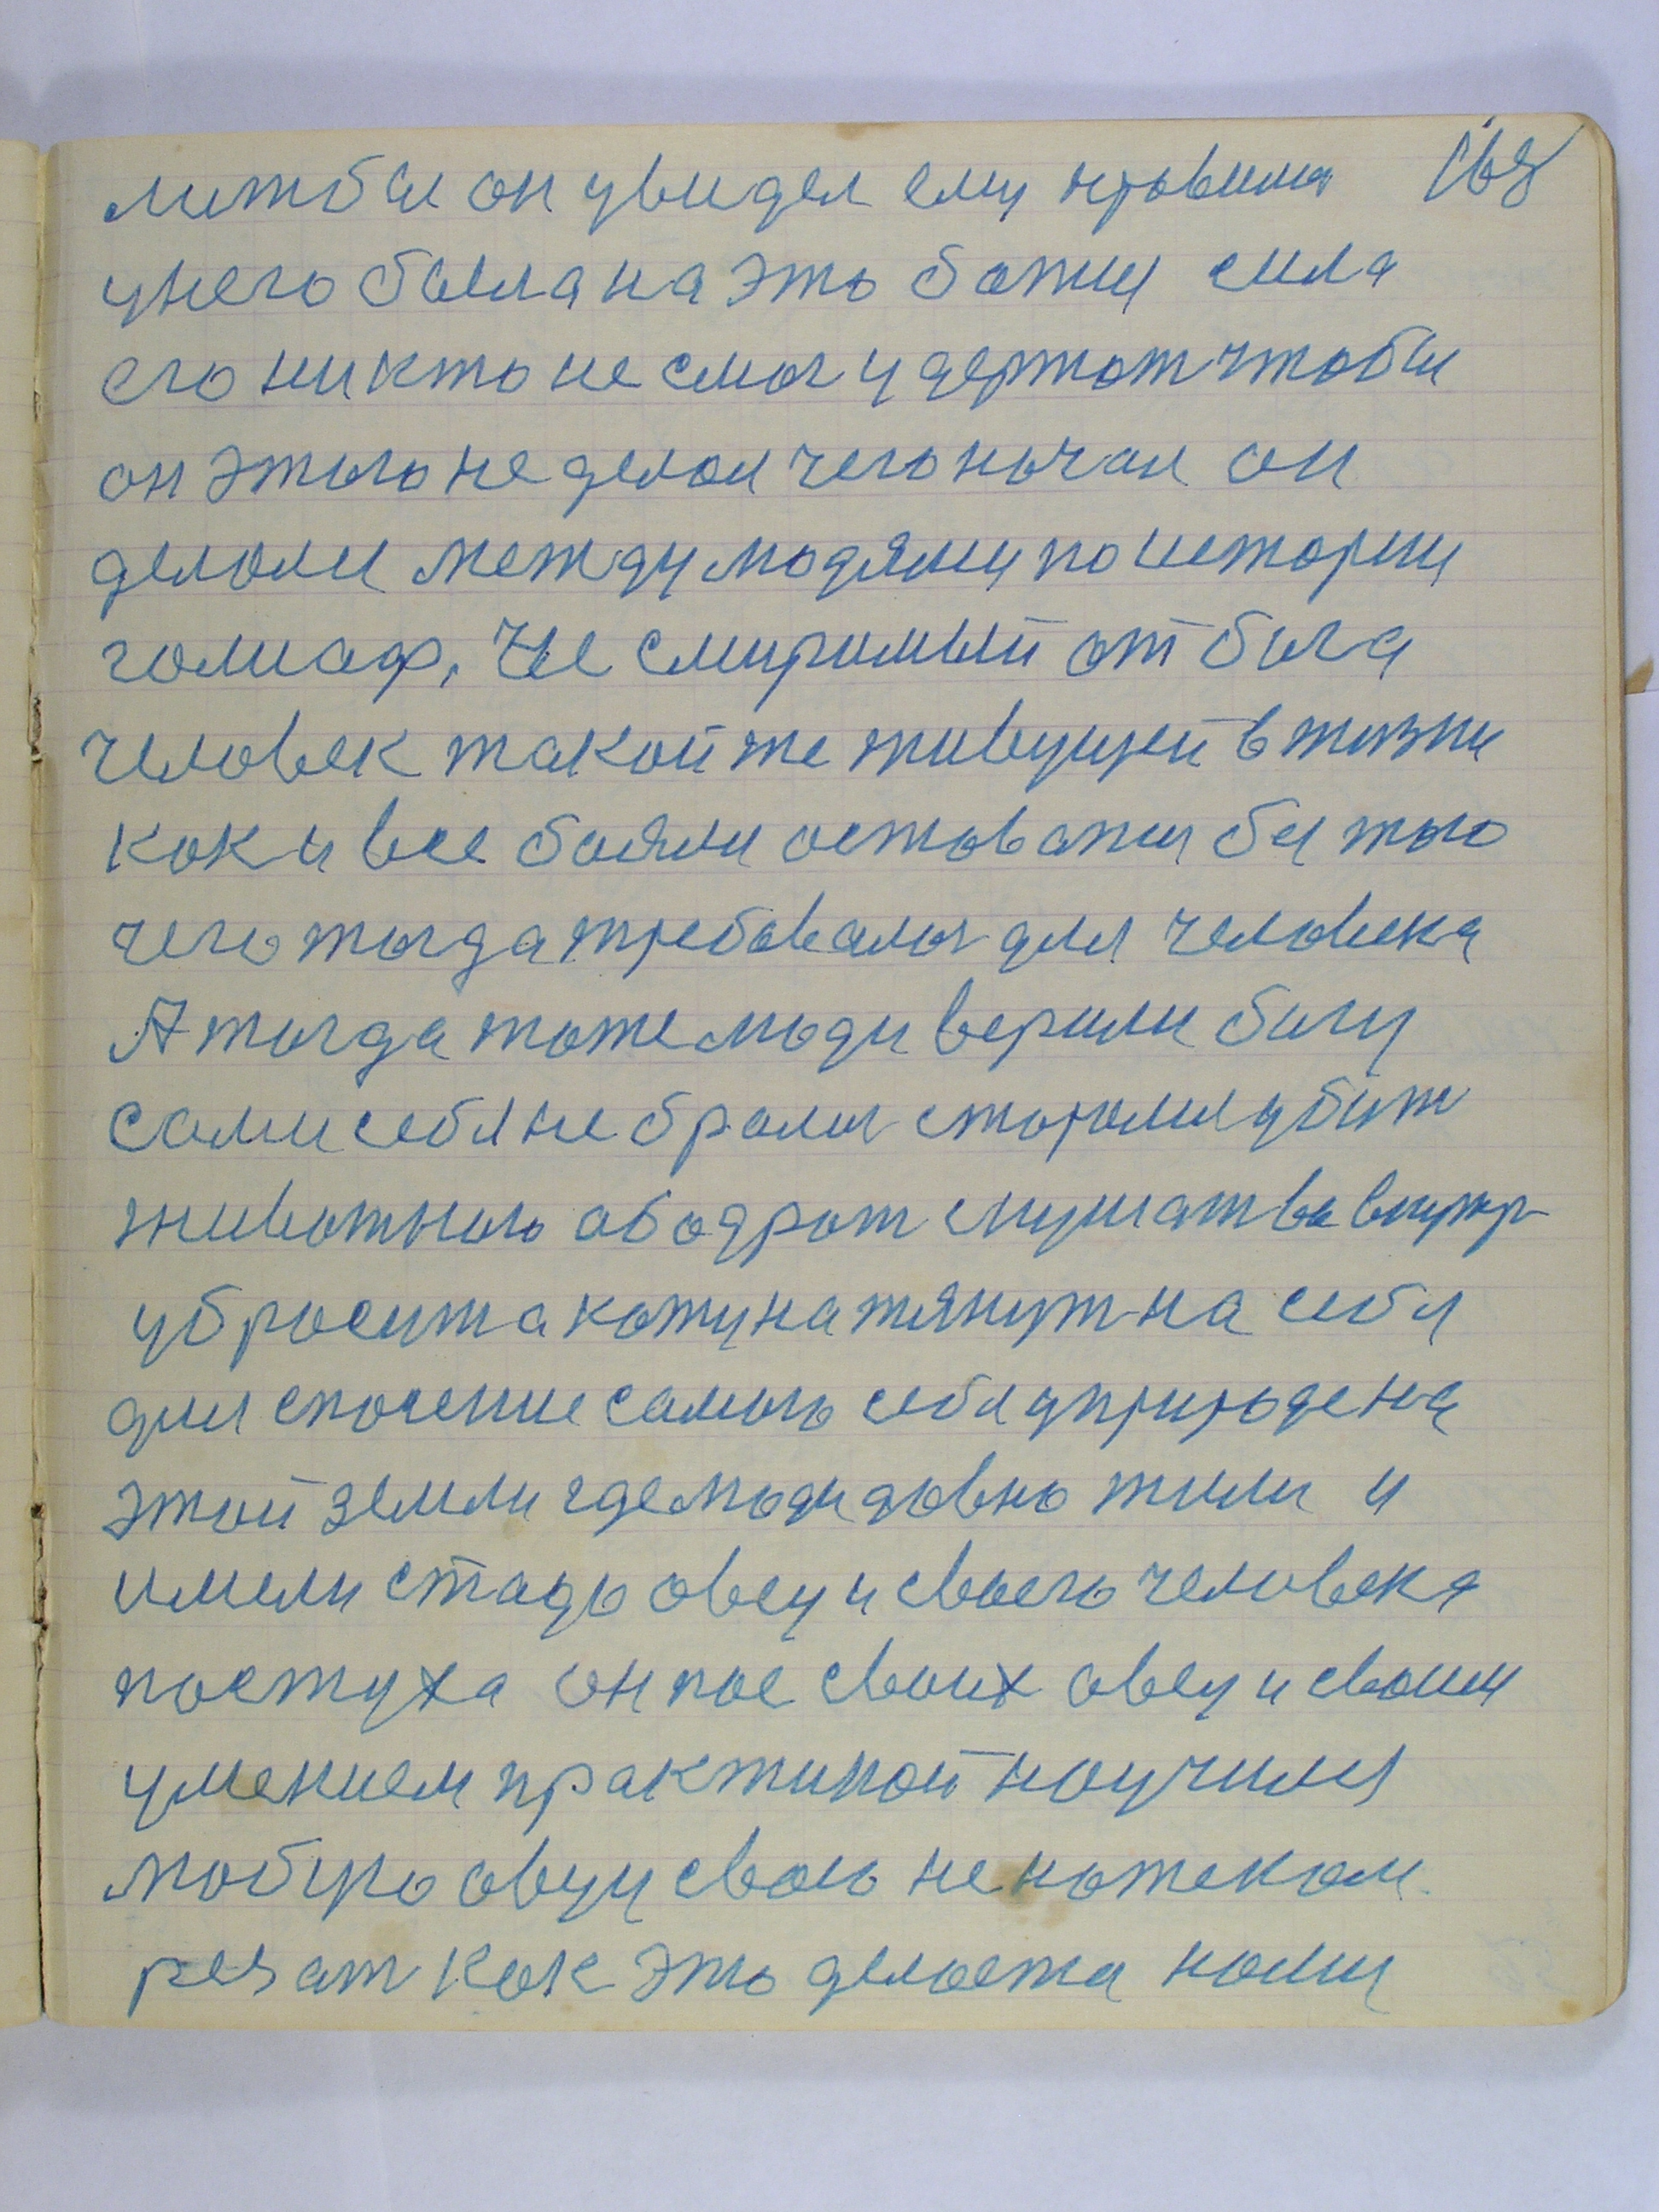 168
лиш бы он увидел ему нравится
у него была на это божия сила
его никто не смог удержат чтобы
он этого не делал чего начал он
делоли между людями по истории
голиаф. Не смиримый от бога
человек такой же живущий в жизни
кок и все боялис оставатся бы того
чего тогда требовалос для человека
А тогда тоже люди верили богу
сами себя не бралис старалис убит
животного абодрат скушат во внутр
убросит а кожу натянут на себя
для спосение самого себя у природе на
этой земли где люди давно жили и
имели стадо овец и своего человека
постуха он пас своих овец и своим
умением практикой научился
любую овцу свою не ножеком
резат кок это делоется нами